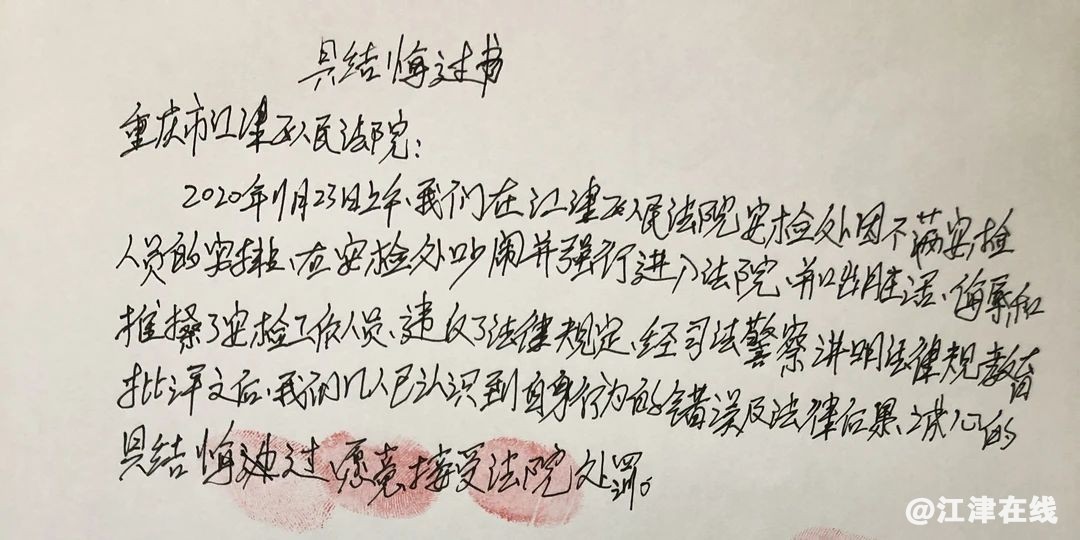 具结悔过书
重庆市江津区人民法院：
2020年11月23日上午、我们在江津区人民法院安检处因不满安检
人员的安排、在安检处吵闹并强行进入法院、并口出脏话、侮辱和
推搡了安检工作人员、违反了法律规定、经司法警察讲明法律规教育
批评文后、我们几人已认识到自身行为的错误及法律后果、诚心的
具结悔过、愿意接受法院处罚。
@江津在线